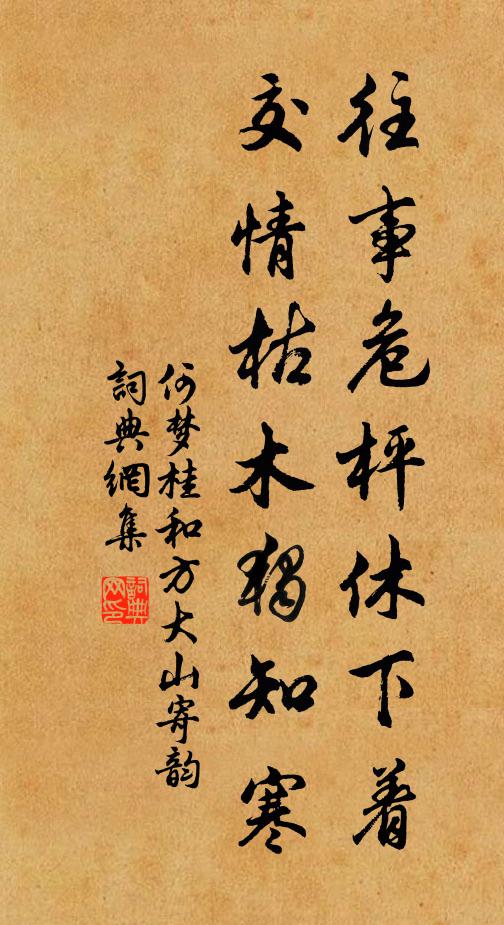 往事危枰休下着
交情枯木獨知寒
何梦桂和方大山寄韵
詞典網集
詞典網印